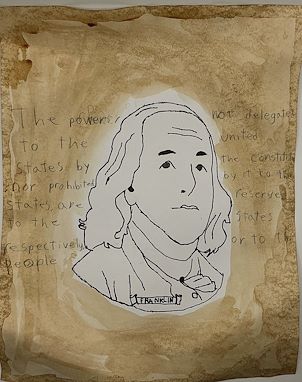 The powers not delegated
to the United
States by the Constitu
nor prohibited by it to the
States, are reserve
to the States
respectively or to the
people
FRANKLIN